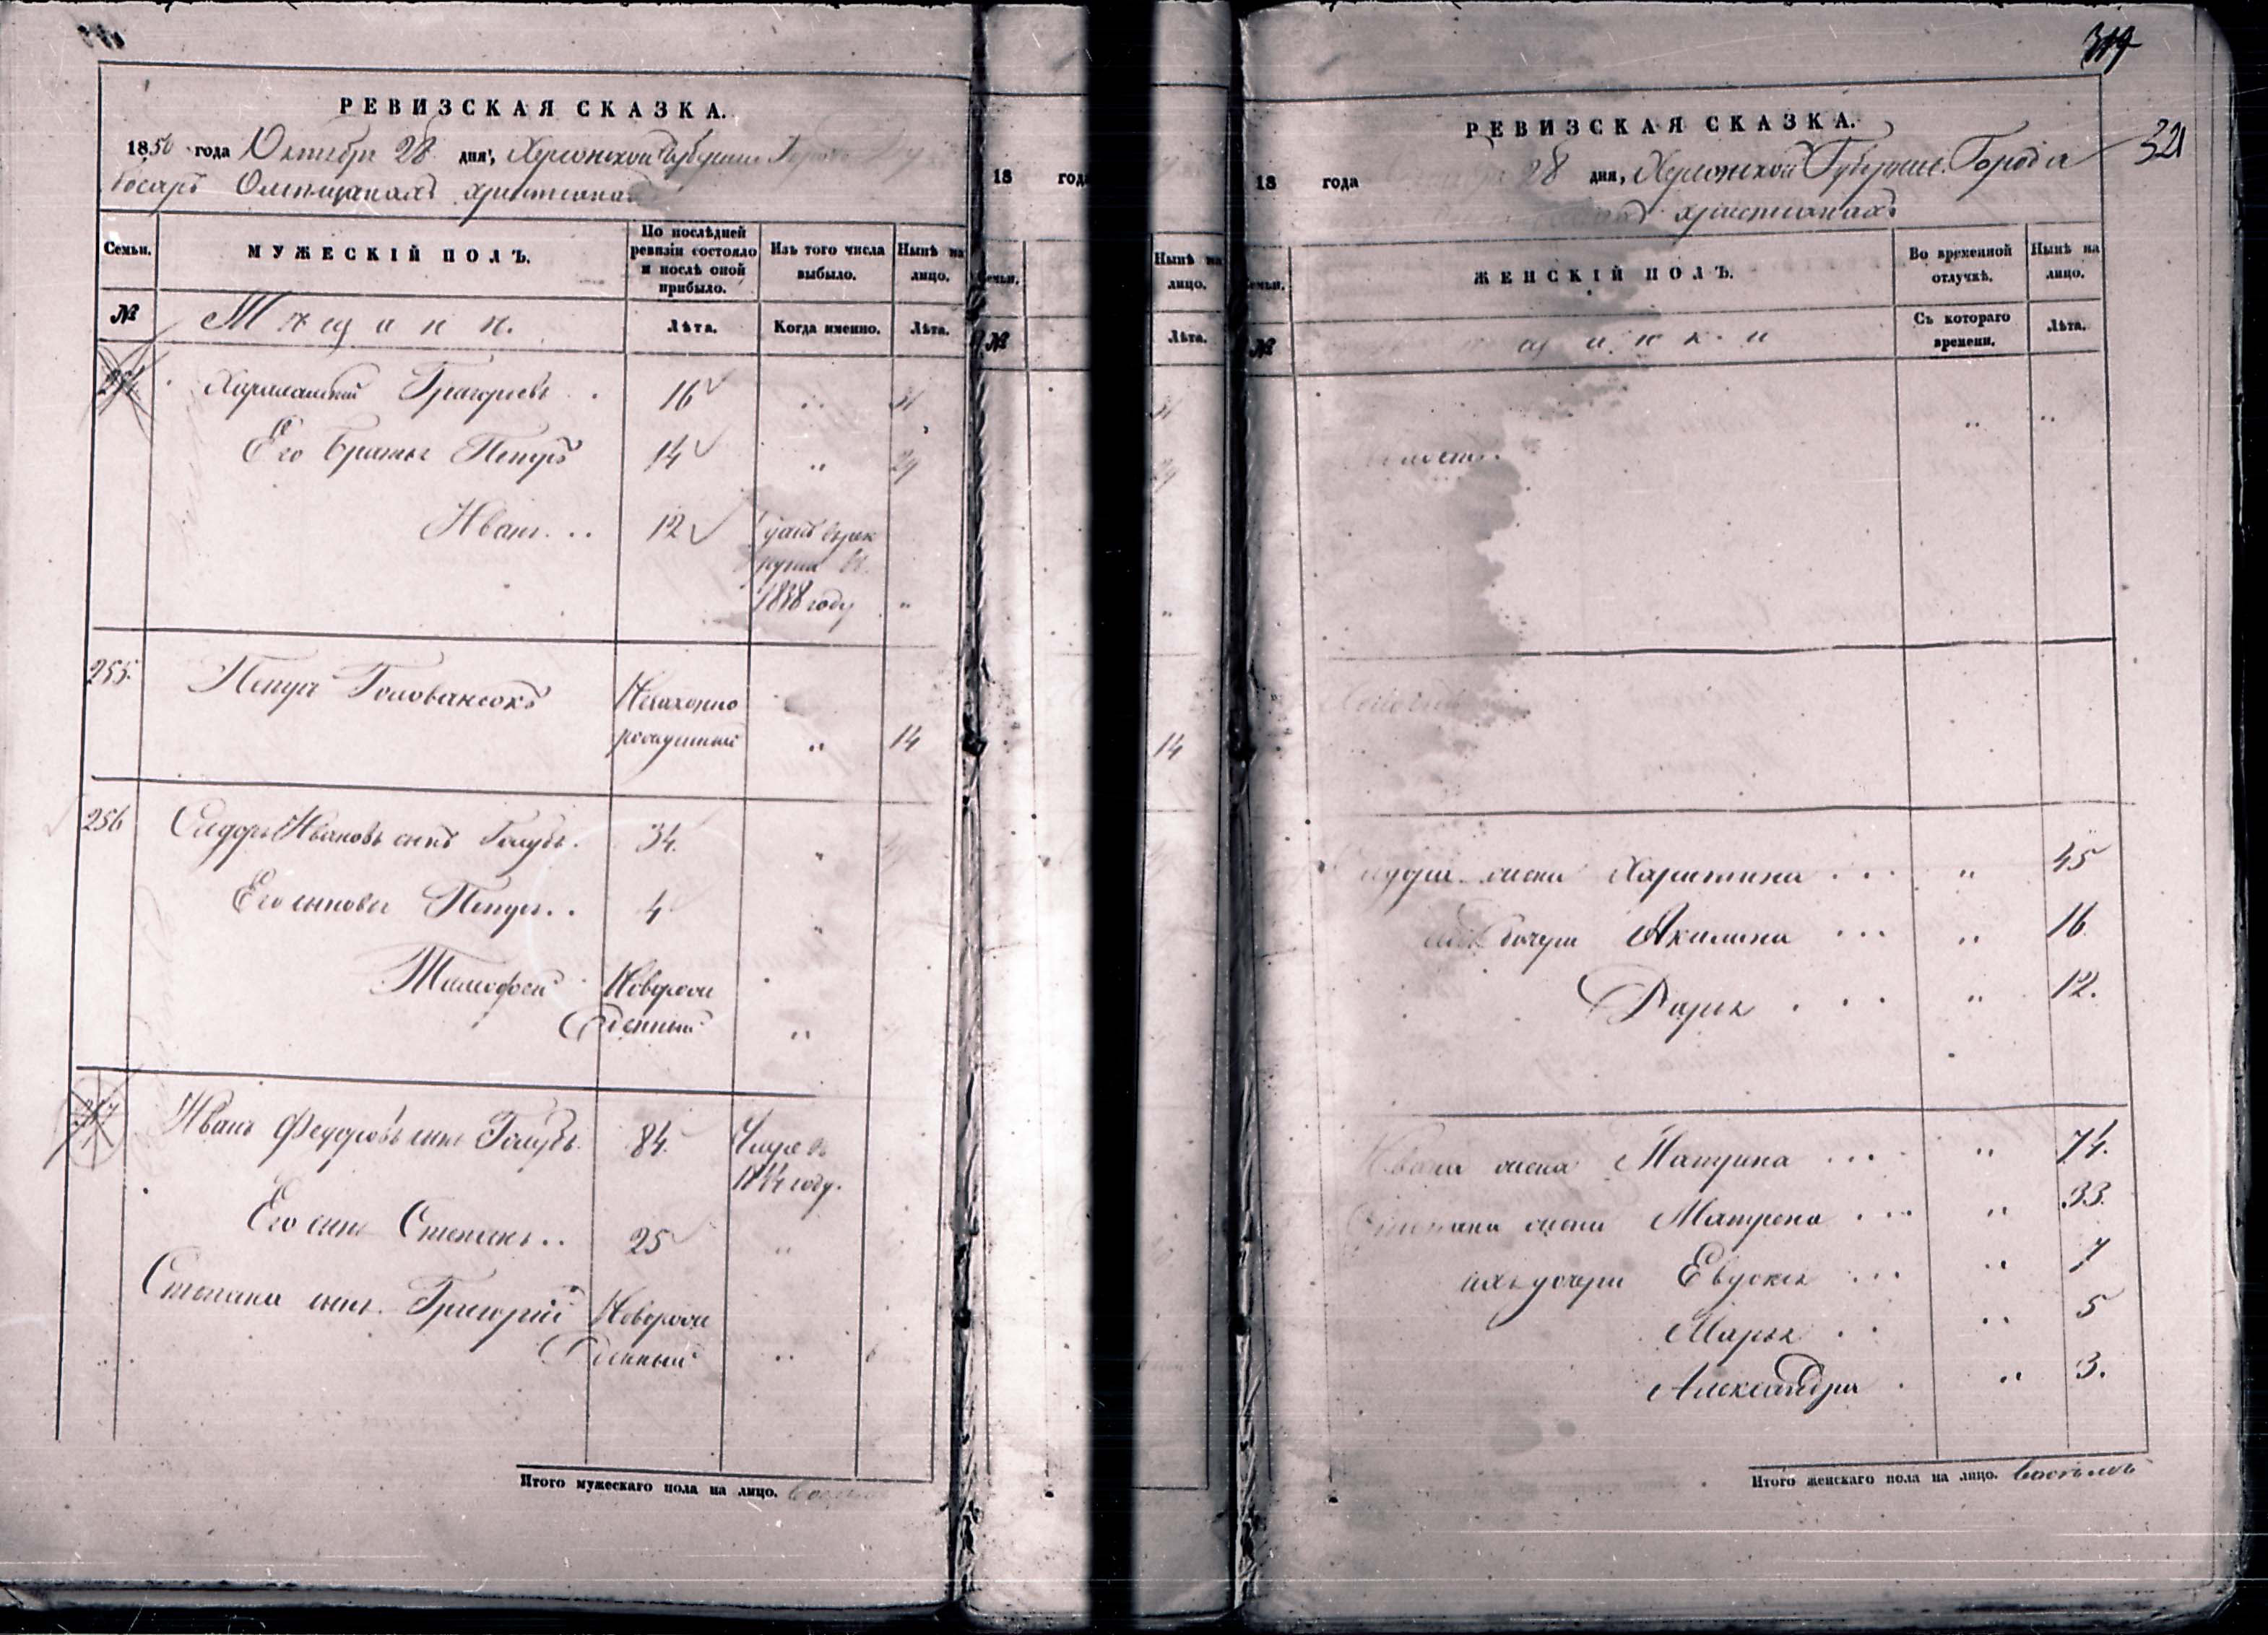 РЕВИЗСКАЯ СКАЗКА.
1850 года Октября 28 дня, Херсонской Губернии Города
О мещанахъ христианахъ
Семьи.
МУЖЕСКІЙ ПОЛЪ.
По послѣдней ревизіи состояло и послѣ оной прибыло.
Изъ того числа выбыло.
Нынѣ на лицо.
№
Мѣщани.
Лѣта.
Когда именно.
Лѣта.
Григорьевъ 16 31
Его братья Петръ 14 29
Иванъ 12
1838 году
255. Петръ Голованеокъ Незаконно
рожденный 14
256 Сидоръ Ивановъ сынъ Голубъ. 34.
Его сыновья Петръ 4
Тимофей Новорож
денный
Иванъ Федоровъ сынъ Голубъ. 84. Умре въ
1844 году.
Его сынъ Степанъ 25
Степана сынъ Григорий Новорож
денный
Итого мужескаго пола на лицо.
18 года
Семьи.
Нынѣ на лицо.
№
Лѣта.
31
29
14
319
321
РЕВИЗСКАЯ СКАЗКА.
18 года 28 дня, Херсонской Губернии Города
христианахъ
Семьи.
ЖЕНСКІЙ ПОЛЪ.
Во временной отлучкѣ.
Нынѣ на лицо.
№
щанки
Съ котораго времени.
Лѣта.
Сидора жена Харитина 45
дочери Акилина 16
Дарья 12.
Ивана жена Матрена 74.
Степана жена Матрена 33.
ихъ дочери Евдокия 7
Марья 5
Александра 3.
Итого женскаго пола на лицо. восемь